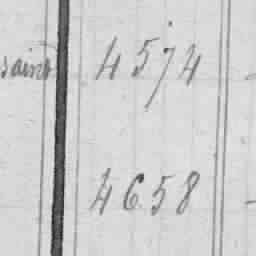 saint 4574 -
4658 -